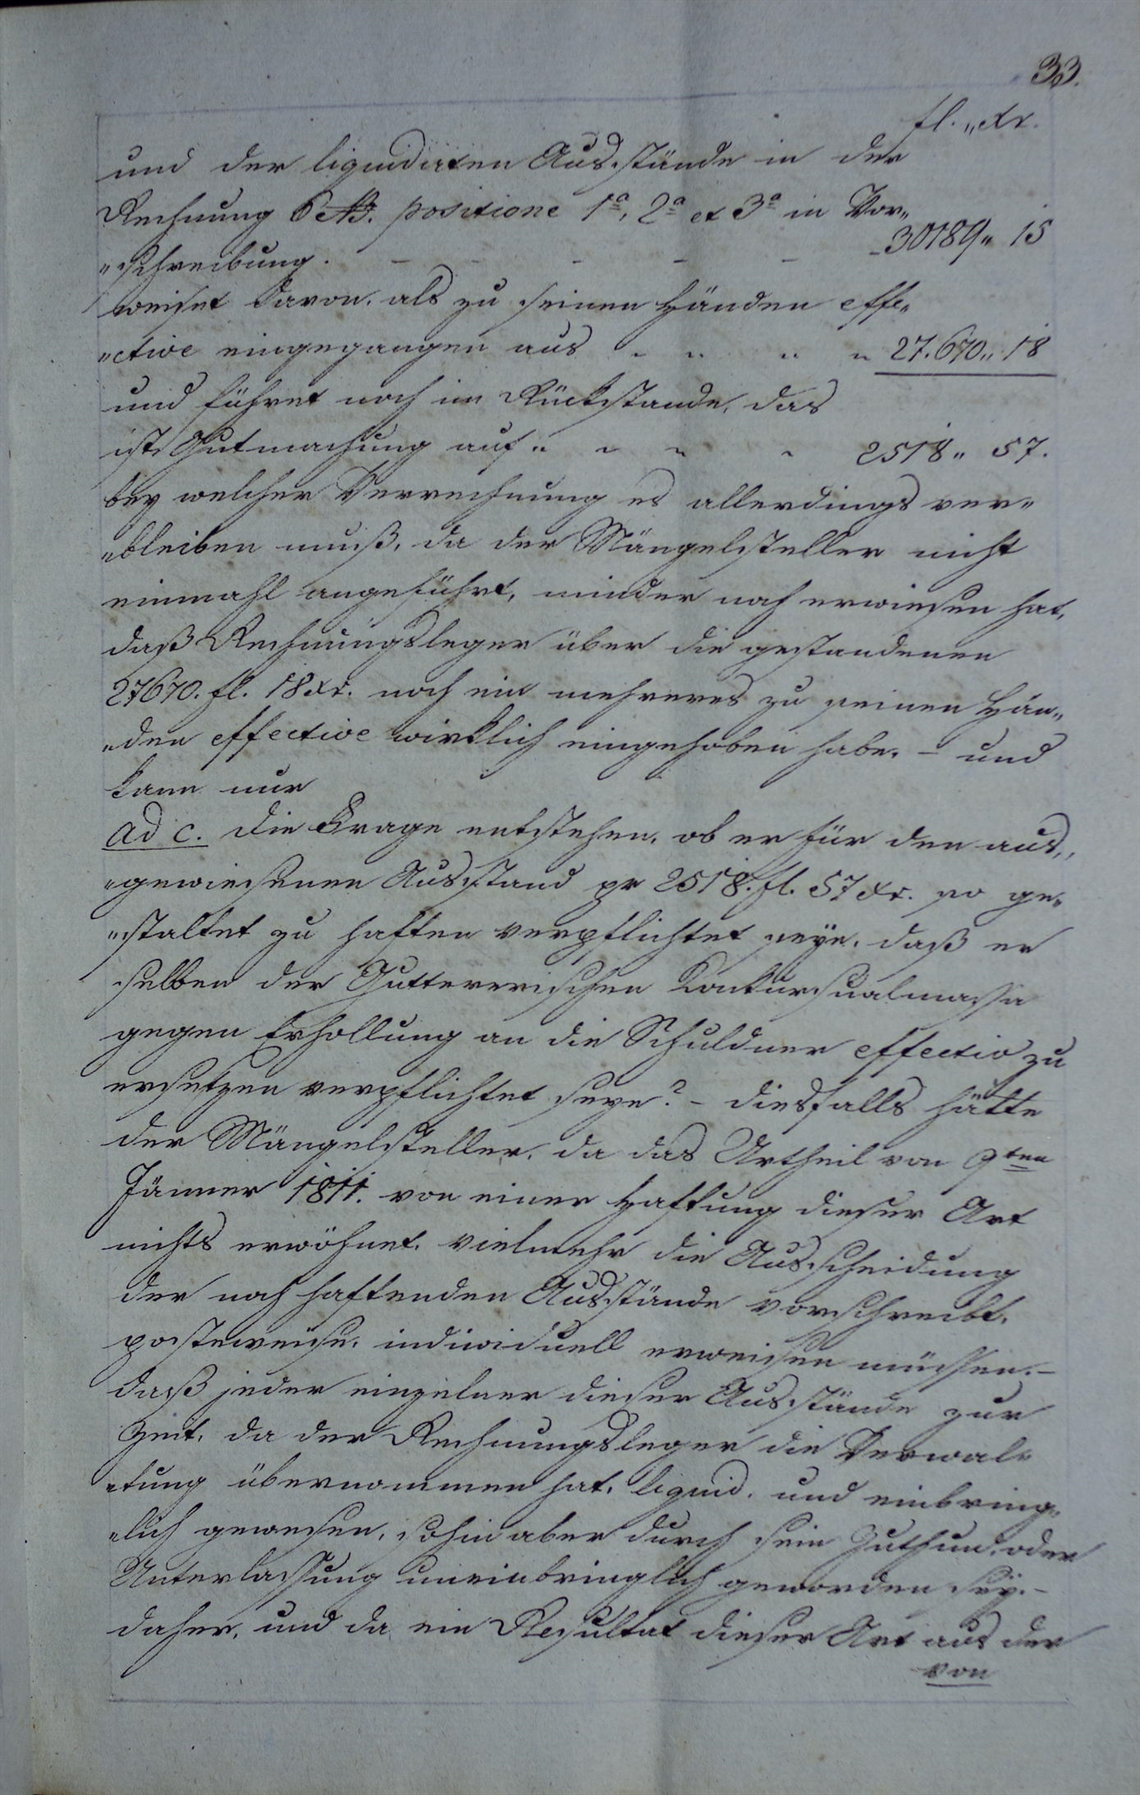 33.
fl. „ xr.
und der liquidirten Ausstände in der
Rechnung positione 1ª, 2ª et 3ª in Vor„
„schreibung. - - - - - - 30189 „ 15
weiset davon, als zu seinen Händen effe„
„ctive eingegangen aus „ „ „ „ 27.670 „ 18
und führet noch im Rückstande, das
ist Gutmachung auf „ „ „ „ 2518 „ 57.
bey welcher Verrechnung es allerdings ver„
„bleiben muß, da der Mängelsteller nicht
einmahl angeführt, minder noch erwiesen hat,
daß Rechnungsleger über die gestandenen
27670. fl. 18 xr. noch ein mehreres zu seinen Hän„
„den effective wirklich eingehoben habe. – und
kann nur
ad c. die Frage entstehen, ob er für den aus„
„gewiesenen Ausstand pr 2518. fl. 57 xr. so ge„
„staltet zu haften verpflichtet seye, daß er
selben der Konkursualmassa
gegen Erhollung an die Schuldner effectiv zu
ersetzen verpflichtet seye? – diesfalls hätte
der Mängelsteller, da das Urtheil von 9ten
Jänner 1811. von einer Haftung dieser Art
nichts erwöhnet, vielmehr die Ausscheidung
der noch haftenden Ausstände vorschreibt,
postenweise, individuell erweisen müssen. –
daß jeder einzelner dieser Ausstände zur
Zeit, da der Rechnungsleger die Verwal„
„tung übernommen hat, liquid, und einbring„
„lich gewesen, sohin aber durch sein Zuthun, oder
Unterlassung uneinbringlich geworden sey. –
daher, und da ein Resultat dieser Art aus der
von